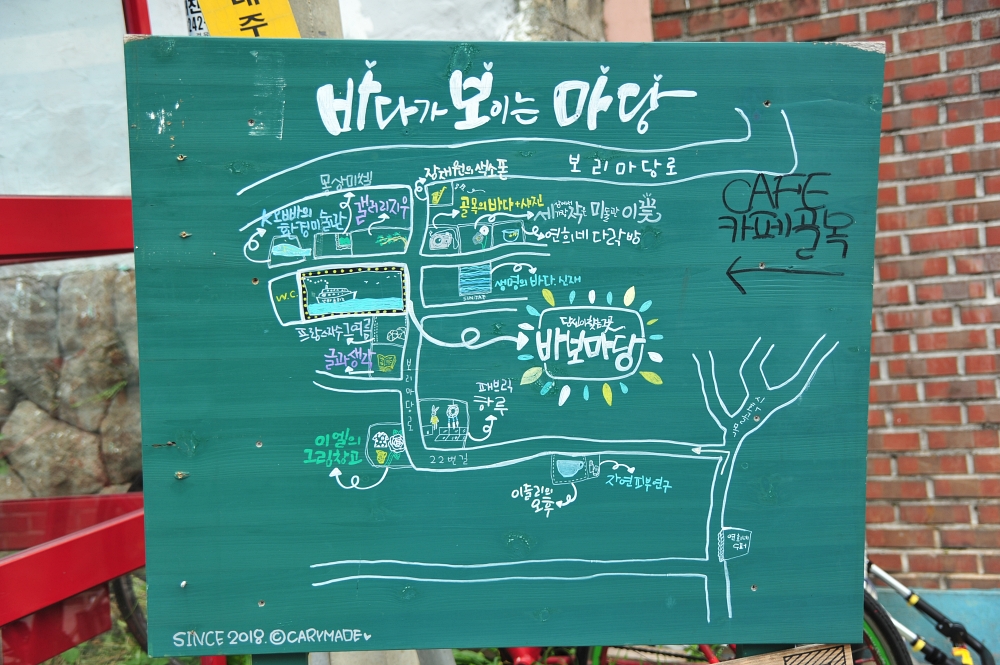 대주
042
바다가 보이는 마당
보리마당로
목상미쎌
장재원의 색소폰
갤러리지우
골목의 바다+사진
작은 미술관 이꽃
연희네 다락방
CAFE
카페골목
W.C
생명의 바다 신재
프랑스자수 규여름
글과생각
당신이 찾는 그곳
바보마당
보리마당로
패브릭
하루
이엘의
그림창고
22번길
이줌리의
오후
자연피부연구
연희네
슈퍼
SINCE 2018. ©CARYMADE